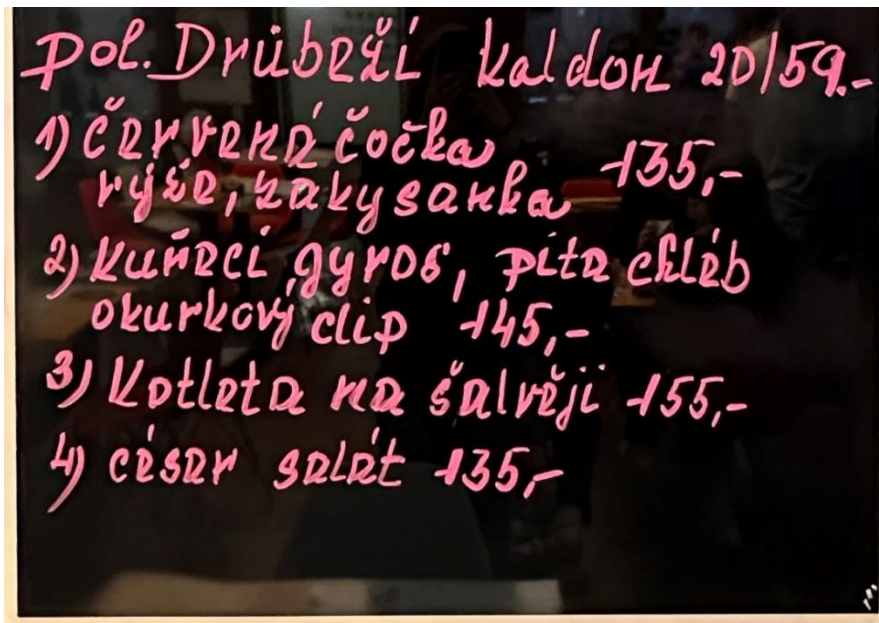 Pol. Drůbeží kaldoun 20/59.-
1) Červená čočka
rýže, zakysanka 135,-
2) Kuřecí gyros, pita chléb
okurkový dip 145,-
3) Kotleta na šalvěji 155,-
4) césar salát 135,-